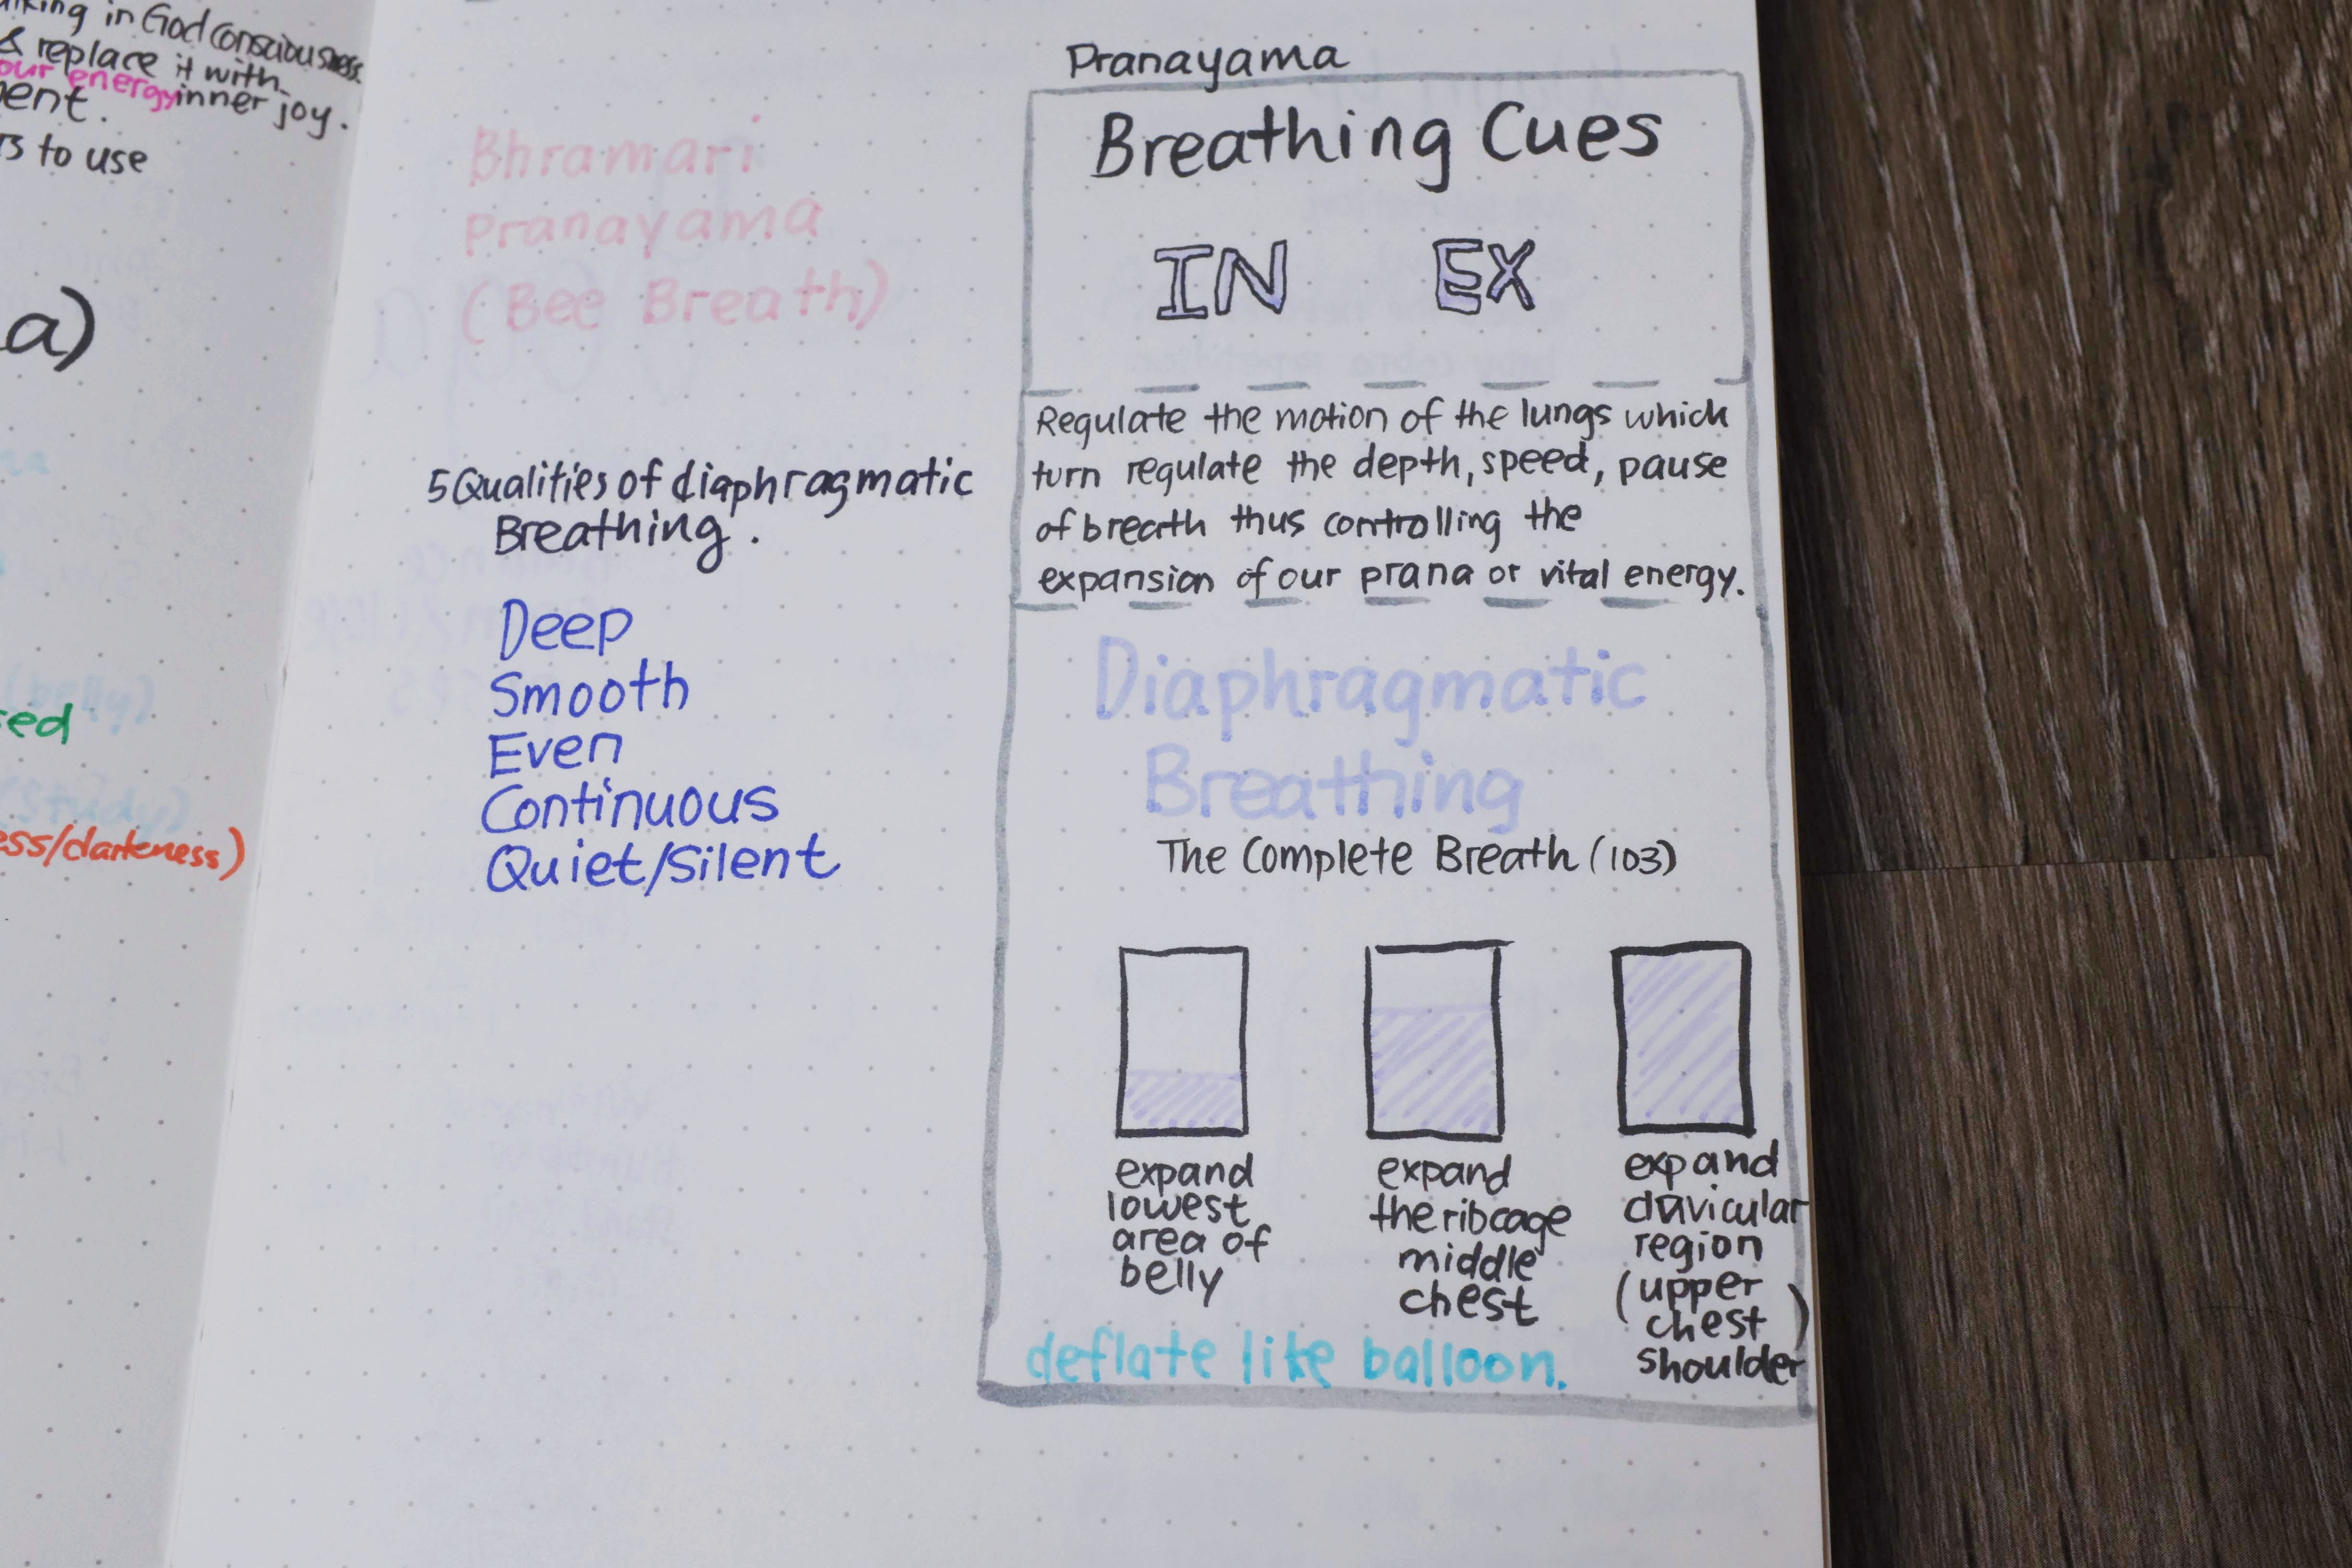 in God consciousness
& replace it with
our energy inner joy.
to use
a)
(belly)
(study)
ess/darkness)
Bhramari
Pranayama
(Bee Breath)
5 Qualities of diaphragmatic
Breathing.
Deep
Smooth
Even
Continuous
Quiet/Silent
Pranayama
Breathing Cues
IN EX
Regulate the motion of the lungs which
turn regulate the depth, speed, pause
of breath thus controlling the
expansion of our prana or vital energy.
Diaphragmatic
Breathing
The Complete Breath (103)
expand
lowest
area of
belly
expand
the ribcage
middle
chest
expand
clavicular
region
(upper
chest)
shoulder
deflate like balloon.